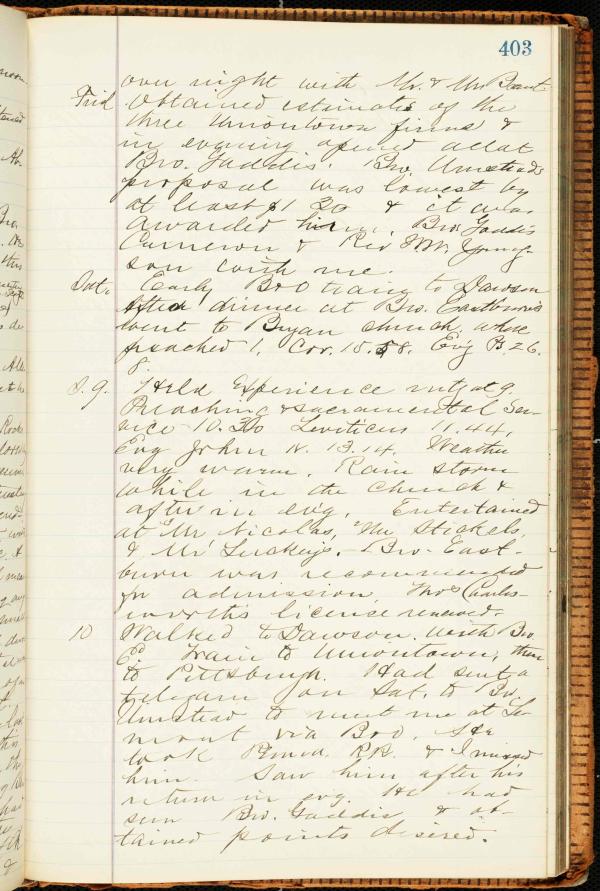 403
over night with Mr. & Mrs
Frid Obtained estimates of the
three Uniontown firms &
in evening opened all at
Bro. Gaddis'. Bro. Umstead's
proposal was lowest by
at least $1 30 & it was
awarded him. Bro Gaddis
Cameron & Rev Young-
son with me.
Sat. Early B&O train to Dawson
After dinner at Bro. Eastburn's
went to Bryan church, where
preached 1. Cor. 15.58. Evg Ps. 26.
8.
S. 9. Held Experience mtg at 9.
Preaching & sacramental Ser-
vice 10.30 Leviticus 11.44.
Evg John 13.14. Weather
very warm. Rain storm
while in the church &
after in ev'g. Entertained
at Mr Nicolas, Mr Stickels,
& Mr Luckey's. Bro. East-
burn was recommended
for admission. Thos Charles-
worth's license renewed.
10 Walked to Dawson, with Bro.
E. Train to Uniontown, then
to Pittsburgh. Had sent a
telegram on Sat. to Bro.
Umstead to meet me at Le-
mont via B&O. He
took Penna. RR. & I missed
him. Saw him after his
return in evg. He had
seen Bro. Gaddis & ob-
tained points desired.